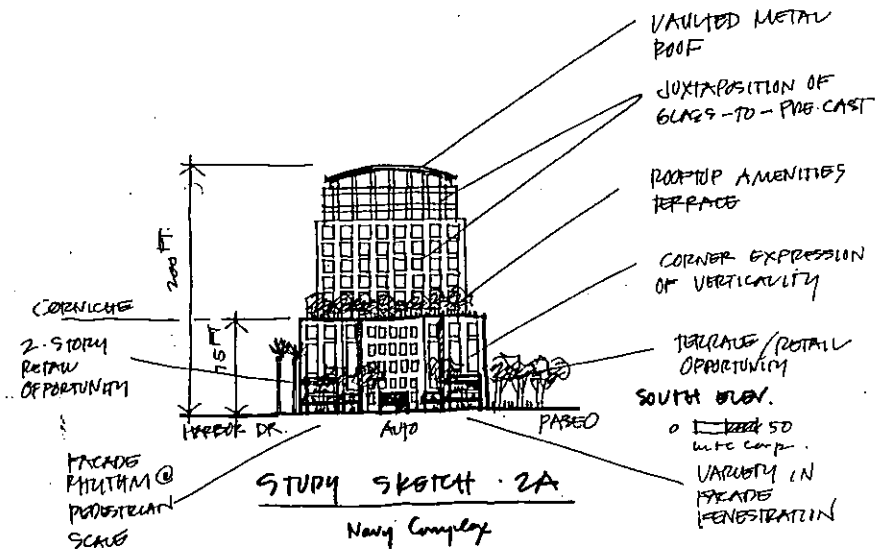 VAULTED METAL
ROOF
JUXTAPOSITION OF
GLASS-TO-PRE-CAST
ROOFTOP AMENITIES
TERRACE
CORNER EXPRESSION
OF VERTICALITY
TERRACE/RETAIL
OPPORTUNITY
SOUTH ELEV.
0 50
VARIETY IN
FACADE
FENESTRATION
200 FT.
75 FT
CORNICHE
2-STORY
RETAIL
OPPORTUNITY
HARBOR DR.
AUTO
PASEO
FACADE
RHYTHM @
PEDESTRIAN
SCALE
STUDY SKETCH · 2A
Navy Complex